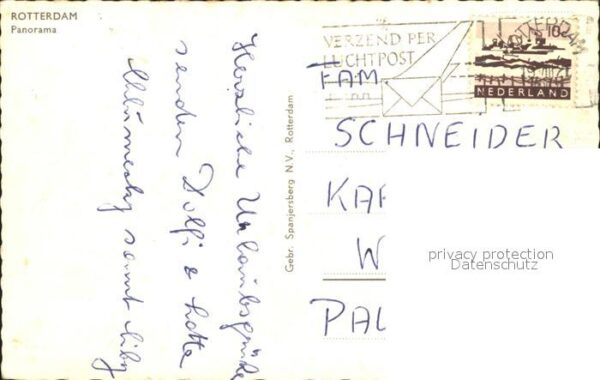 ROTTERDAM
Panorama
Herzliche Urlaubsgrüße
senden Dolfi & Lotte
samt
Gebr. Spanjersberg N.V., Rotterdam
VERZEND PER
LUCHTPOST
ROTTERDAM
10c
NEDERLAND
FAM
SCHNEIDER
KAR
W
PAL
privacy protection
Datenschutz